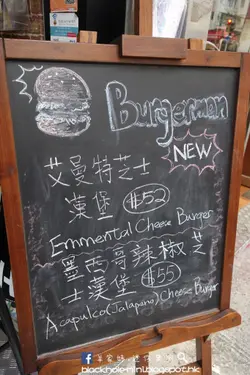 Burgerman
NEW
艾曼特芝士
漢堡 $52
Emmental Cheese Burger
墨西哥辣椒芝
士漢堡 $55
Acapulco (Jalapuno) Cheese Burger
blackhole-mini.blogspot.hk